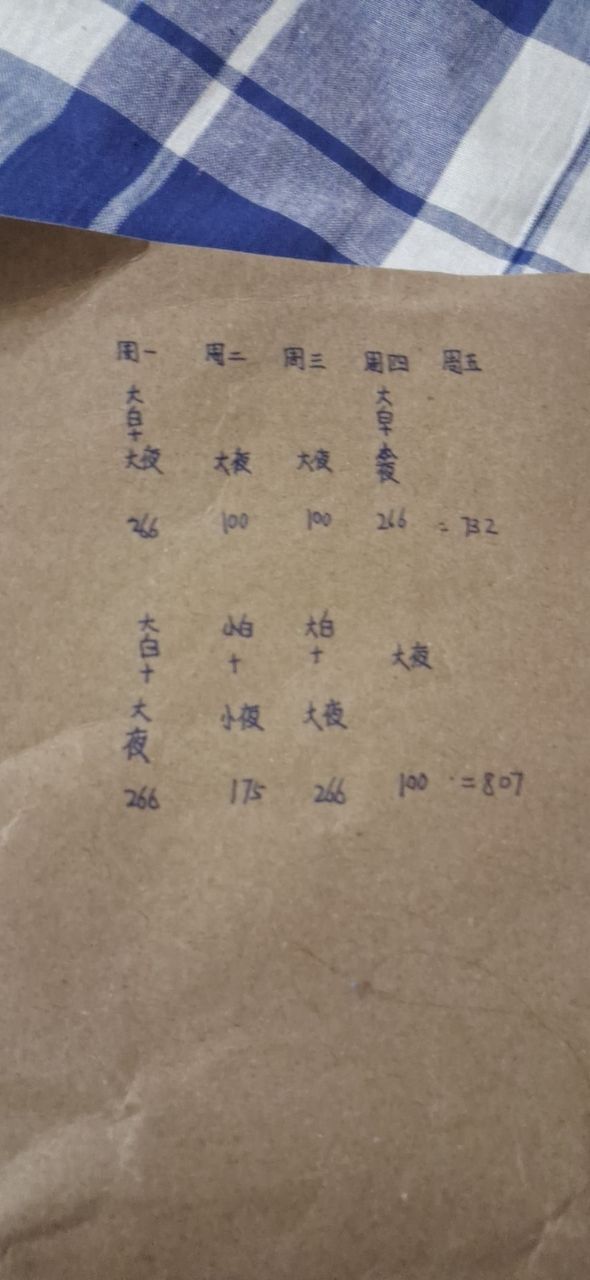 周一 周二 周三 周四 周五
大 大
白 白
+ +
大夜 大夜 大夜 夜
266 100 100 266 = 732
大 小白 大白
白 + + 大夜
+
大 小夜 大夜
夜
266 175 266 100 = 807